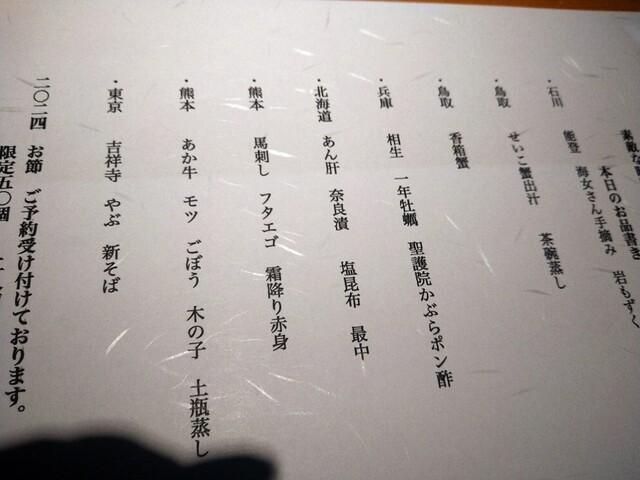 素敵な
本日のお品書き
・石川 能登 海女さん手摘み 岩もずく
・鳥取 せいこ蟹出汁 茶碗蒸し
・鳥取 香箱蟹
・兵庫 相生 一年牡蠣 聖護院かぶらポン酢
・北海道 あん肝 奈良漬 塩昆布 最中
・熊本 馬刺し フタエゴ 霜降り赤身
・熊本 あか牛 モツ ごぼう 木の子 土瓶蒸し
・東京 吉祥寺 やぶ 新そば
二〇二四 お節 ご予約受け付けております。
限定五〇個